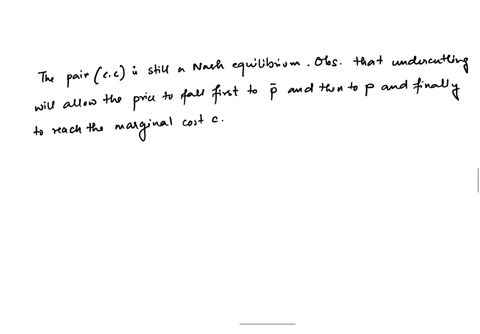 The pair (c,c) is still a Nash equilibrium. Obs. that undercutting
will allow the price to fall first to p̄ and then to p and finally
to reach the marginal cost c.